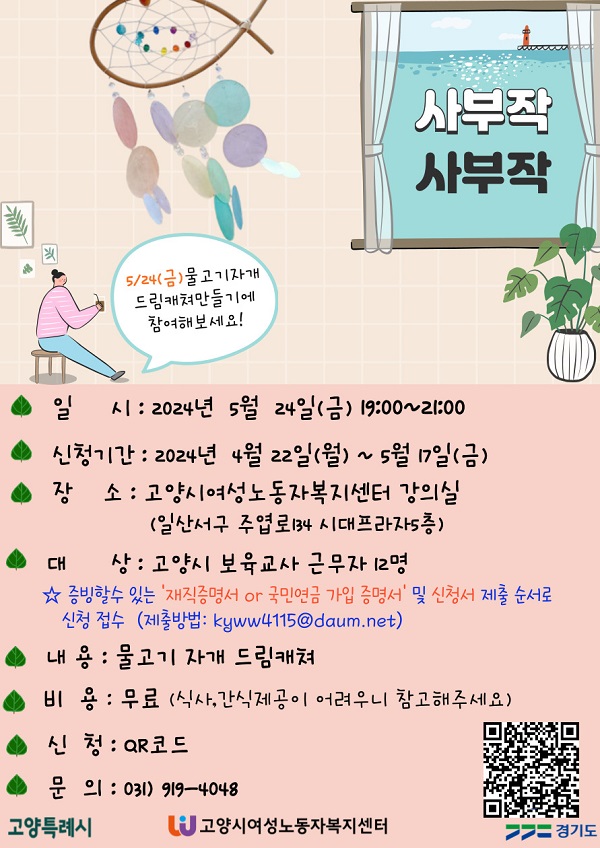 사부작
사부작
5/24(금)물고기자개
드림캐쳐만들기에
참여해보세요!
일 시 : 2024년 5월 24일(금) 19:00~21:00
신청기간 : 2024년 4월 22일(월) ~ 5월 17일(금)
장 소 : 고양시여성노동자복지센터 강의실
(일산서구 주엽로134 시대프라자5층)
대 상 : 고양시 보육교사 근무자 12명
☆ 증빙할수 있는 '재직증명서 or 국민연금 가입 증명서' 및 신청서 제출 순서로
신청 접수 (제출방법: kyww4115@daum.net)
내 용 : 물고기 자개 드림캐쳐
비 용 : 무료 (식사,간식제공이 어려우니 참고해주세요)
신 청 : QR코드
문 의 : 031) 919-4048
고양특례시
고양시여성노동자복지센터
경기도